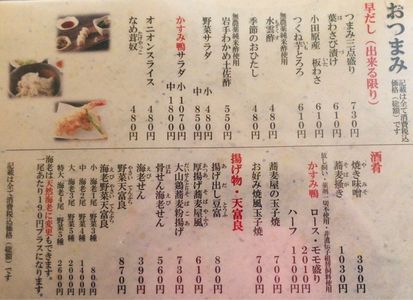 おつまみ
記載は全て消費税込み
価格（総額）です
早だし（出来る限り）
つまみ三点盛り 730円
葉わさび漬け 610円
小田原産 板わさ 680円
つくね芋とろろ 730円
季節のおひたし 480円
無農薬純米酢使用
水雲酢 480円
無農薬純米酢使用
岩手わかめ土佐酢 480円
野菜サラダ 小 480円
中 580円
かすみ鴨サラダ 小 1070円
中 1180円
オニオンスライス 480円
なめ茸奴 480円
酒肴
焼き味噌 390円
蕎麦掻き 1030円
かすみ鴨
ロース・モモ盛り 2010円
ハーフ 1100円
蕎麦屋の玉子焼 700円
お好み焼風玉子焼 700円
揚げ物・天富良
揚げ出し豆富 800円
厚揚げ蕎麦屋風 610円
大山鶏蕎麦粉揚げ 700円
骨せん海老せん 520円
海老せん 390円
野菜天富良 870円
海老野菜天富良
小 海老1尾 野菜3種 800円
中 海老2尾 野菜5種 1400円
大 海老3尾 野菜5種 2000円
特大 海老4尾 野菜5種 2600円
海老は天然海老に変更もできます。
1尾あたり190円プラスになります。
記載は全て消費税込み価格（総額）です